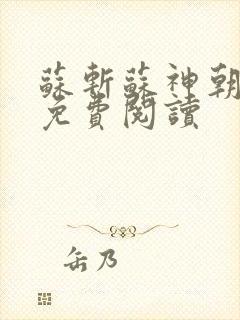 蘇斬蘇神朝
免費閱讀
缶乃